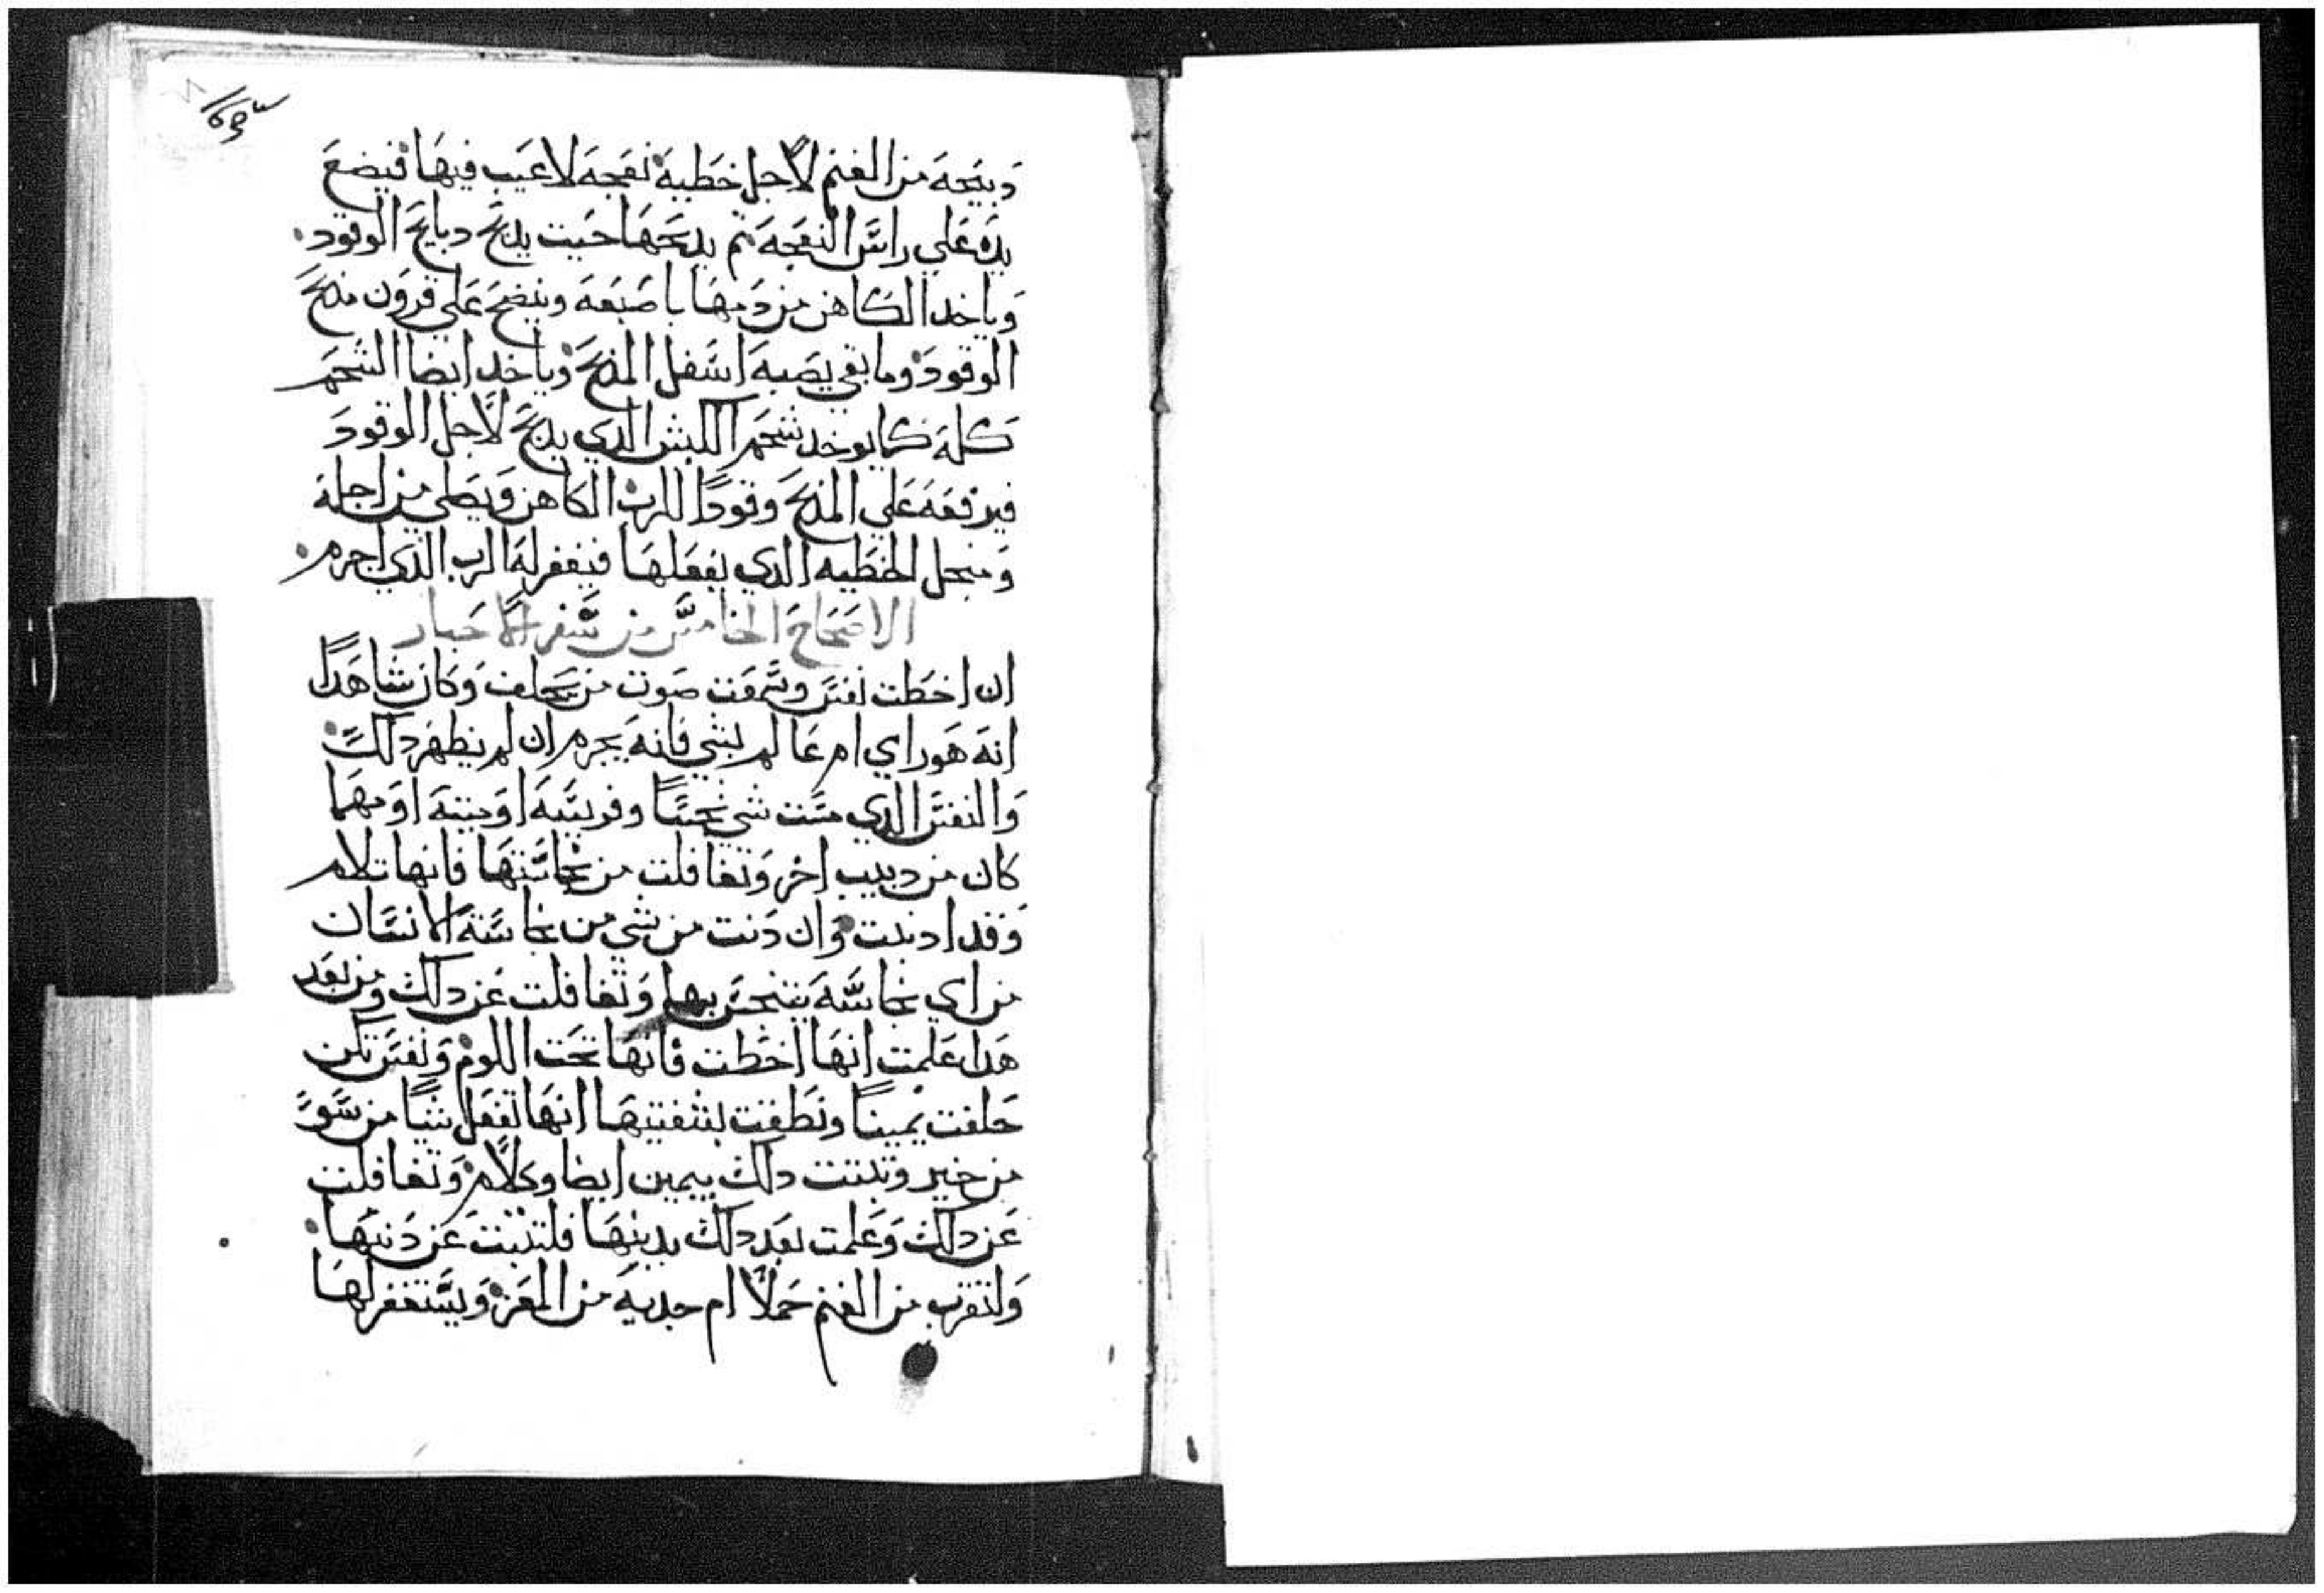 دبيحه من الغنم لاجل خطية نعجه لا عيب فيها فيضع
يده علي راس النعجه تم يدبحها حيت يدبح دبايح الوقود
وياخد الكاهن من دمها باصبعه وينضح علي قرون مدبح
الوقود وما بقي يصبه اسفل المدبح وياخد ايضا الشحم
كله كما يوخد شحم الكبش الدي يدبح لاجل الوقود
فيرفعه علي المدبح وقودًا للرب الكاهن ويصلي من اجله
ومنجل الخطيه الدي يفعلها فيغفر له الرب الدي اجرم
الاصحاح الخامس من سفر الاحبار
ان اخطت نفس وسمعت صوت من يحلف وكان شاهدًا
انه هو راي ام عالم بشي فانه يجرم ان لم يظهر دلك
والنفس الدي مست شي نجسًا وفريسه او ميته او مهما
كان من دبيب اخر وتغافلت من نجاستها فانها تلام
وقد ادنبت وان دنت من شي من نجاسة الانسان
من اي نجاسه يتنجس بها وتغافلت عن دلك ومن بعد
هدا علمت انها اخطت فانها تحت اللوم ونفس تكن
حلفت يمينًا ونطقت بشفتيها انها تفعل شيًا من سو
من خير وتبتت دلك بيمين ايضا وكلام وتغافلت
عن دلك وعلمت بعد دلك بدينها فلتدبت عن دنبها
ولتقرب من الغنم حملاً ام جديه من المعز ويستغفر لها